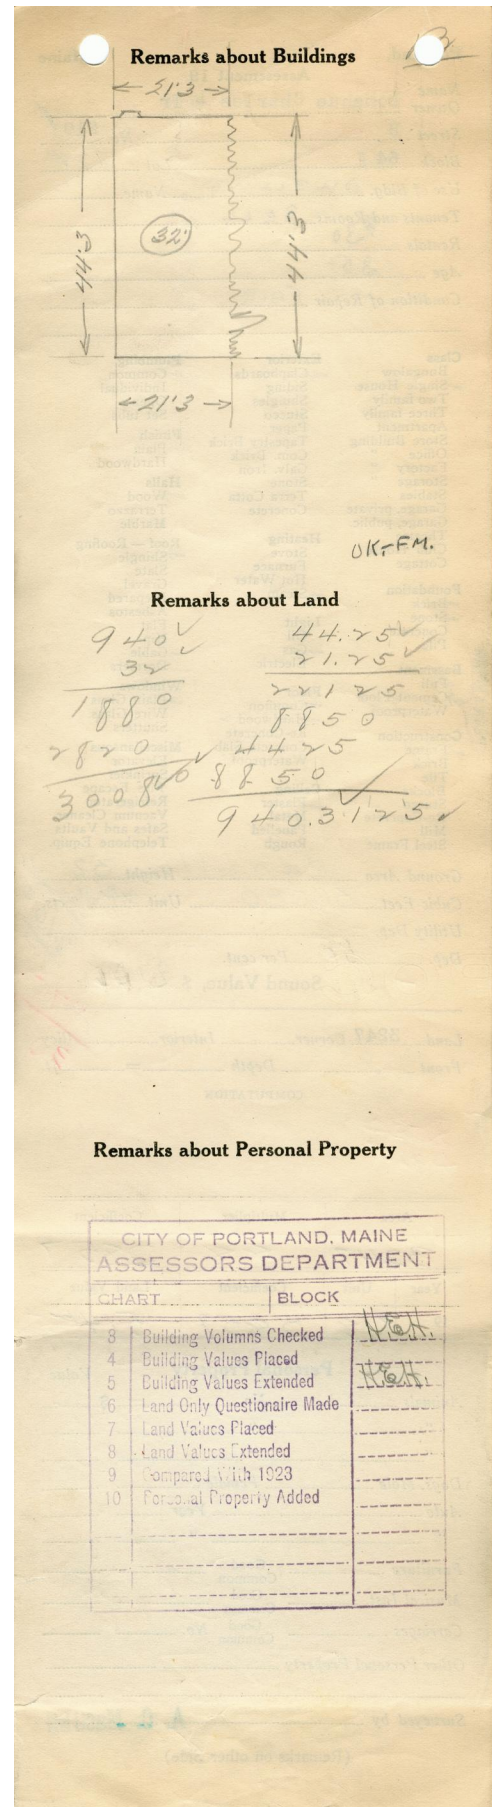 Remarks about Buildings
21'3
44'3
32'
44'3
21'3
OK-FM.
Remarks about Land
940
32
1880
2820
30080
44.25
21.25
22125
8850
4425
8850
940.3125
Remarks about Personal Property
CITY OF PORTLAND, MAINE
ASSESSORS DEPARTMENT
CHART BLOCK
3 Building Volumns Checked H.E.H.
4 Building Values Placed
5 Building Values Extended H.E.H.
6 Land Only Questionaire Made
7 Land Values Placed
8 Land Values Extended
9 Compared With 1923
10 Personal Property Added